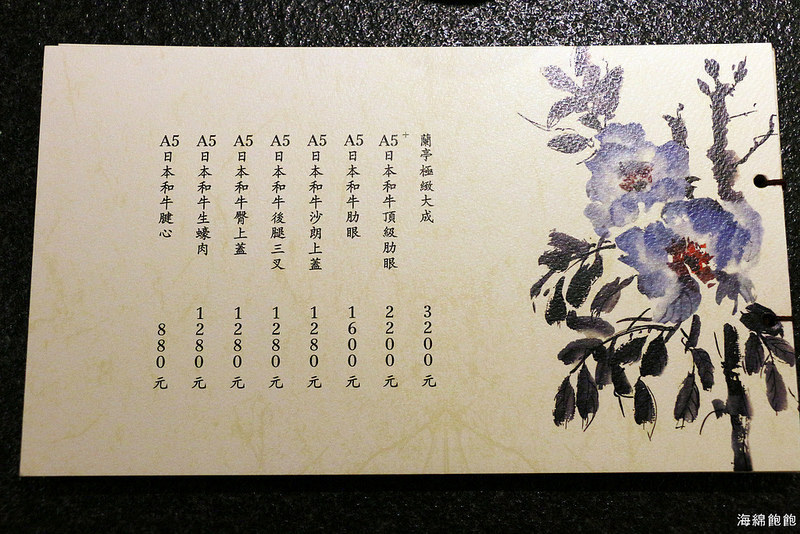 蘭亭極緻大成 3200元
A5+日本和牛頂級肋眼 2200元
A5日本和牛肋眼 1600元
A5日本和牛沙朗上蓋 1280元
A5日本和牛後腿三叉 1280元
A5日本和牛臀上蓋 1280元
A5日本和牛生蠔肉 1280元
A5日本和牛腱心 880元
海綿飽飽